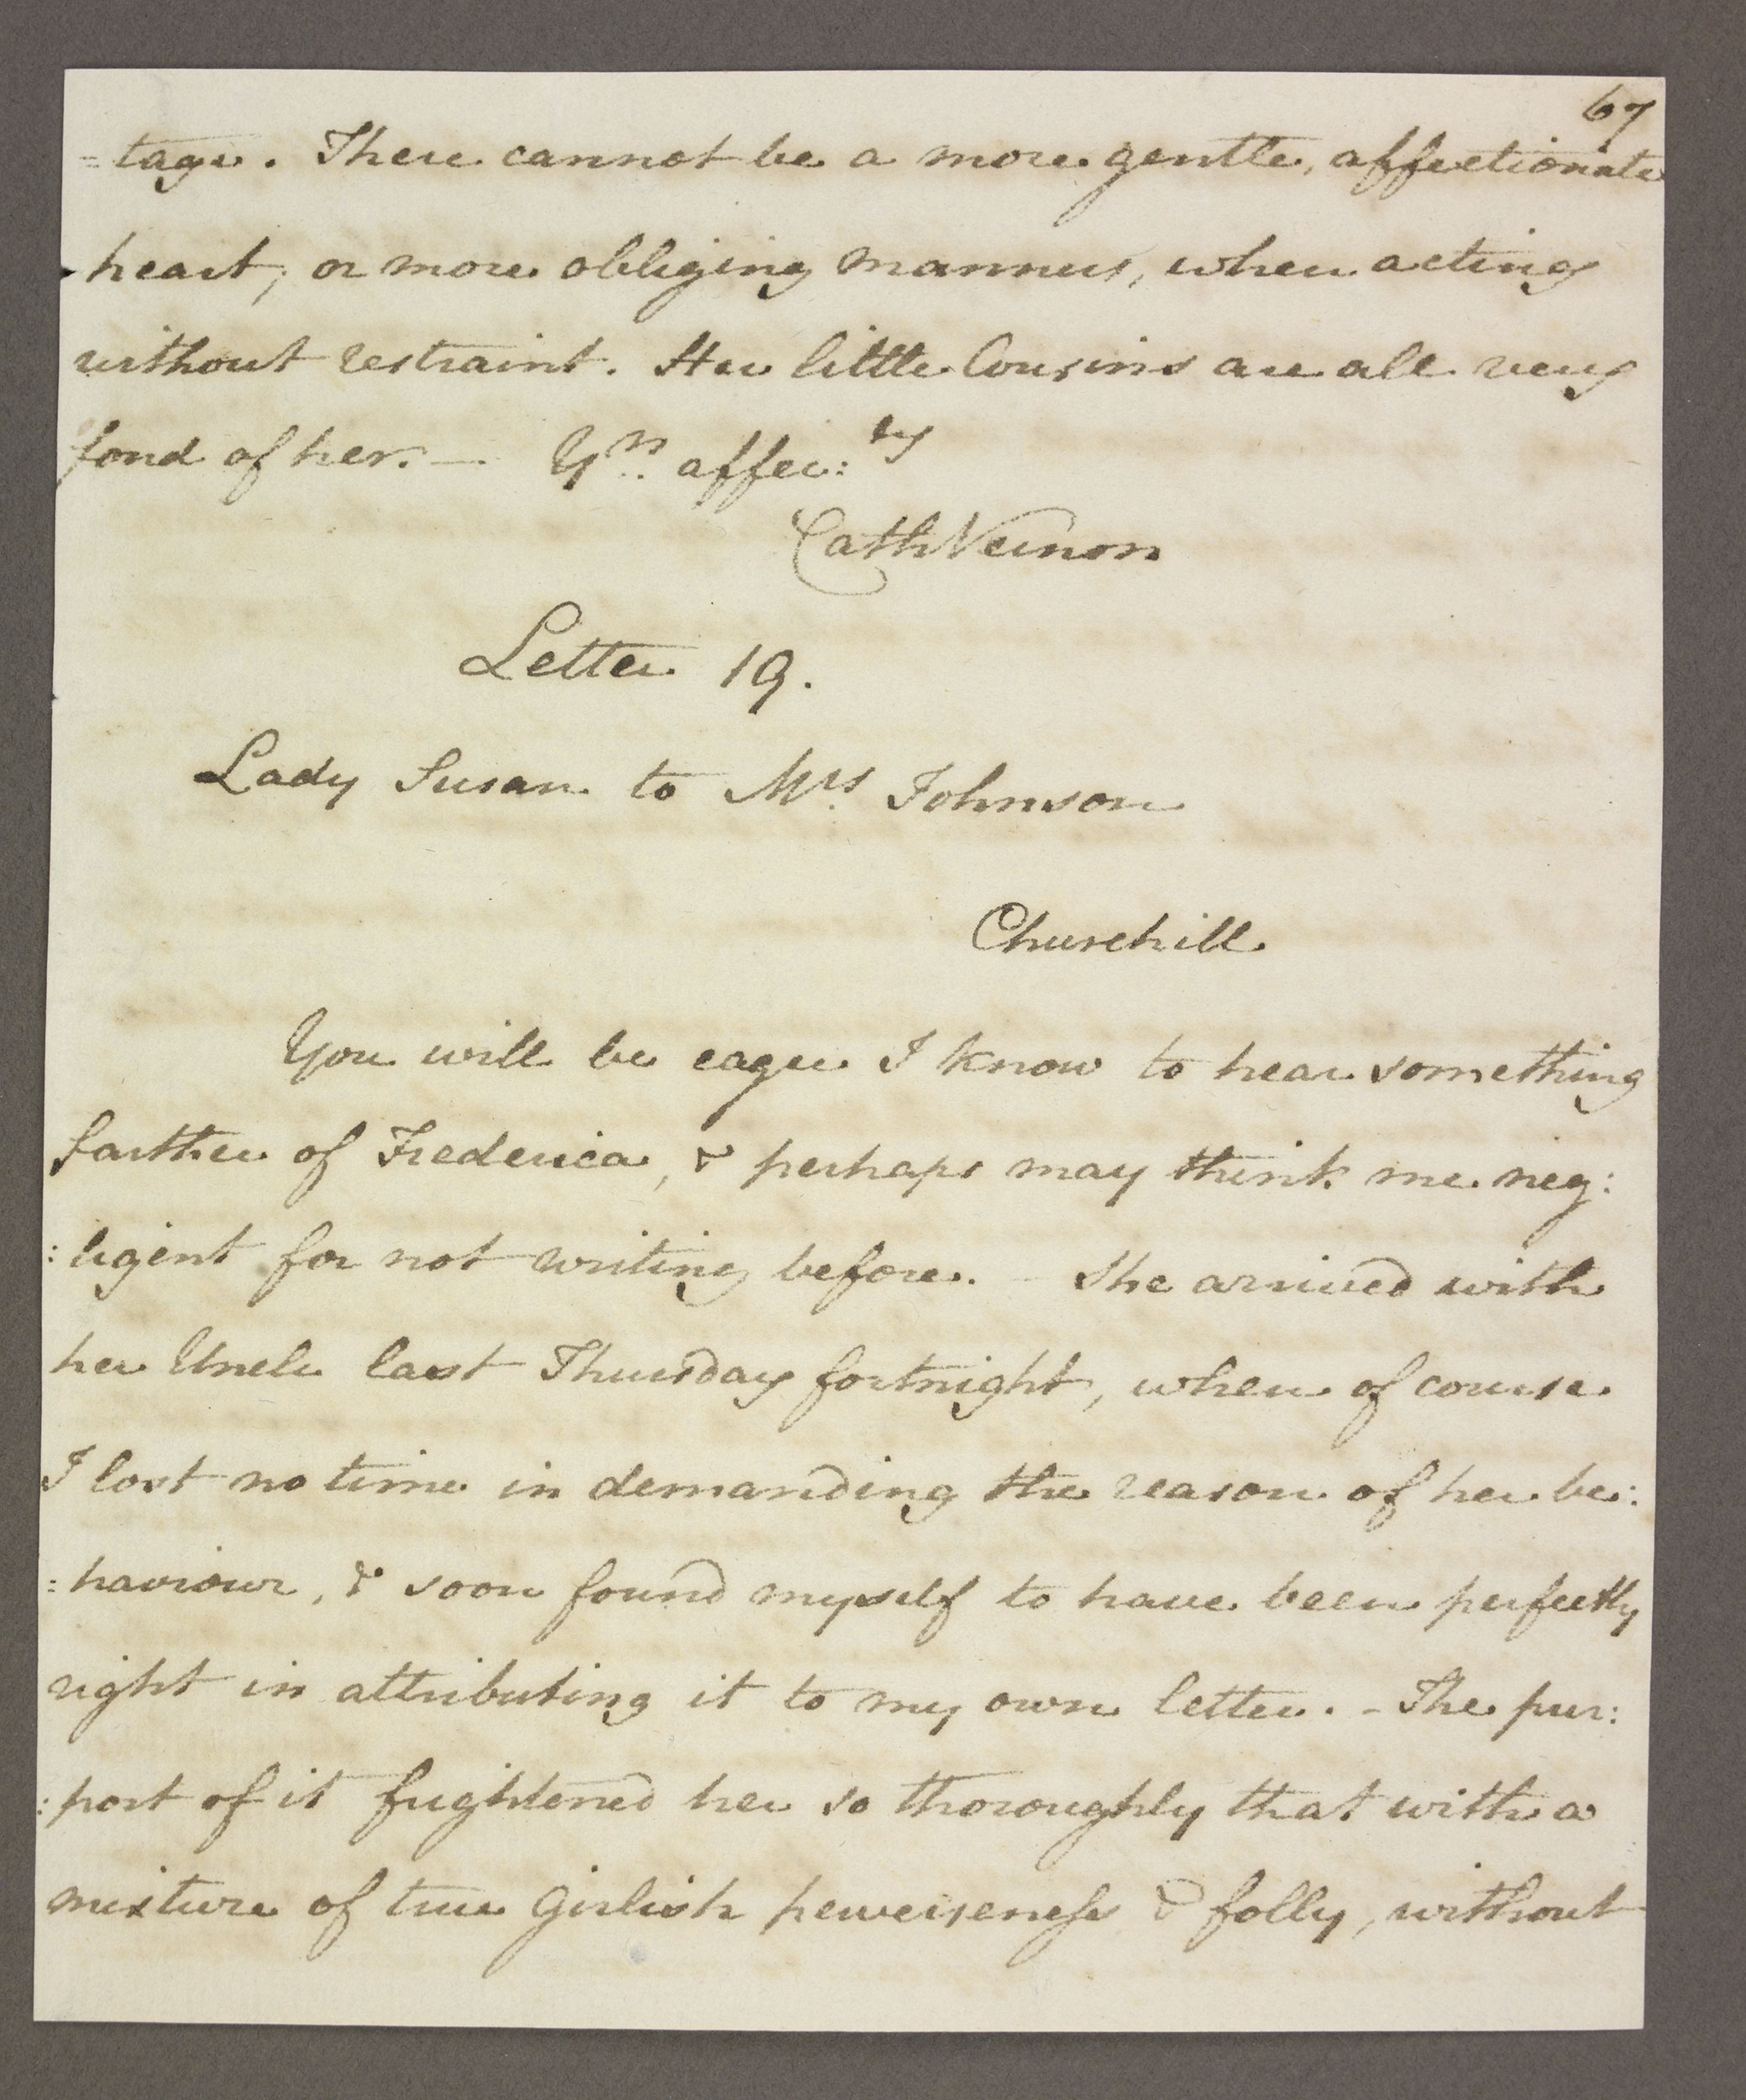 67
=tage. There cannot be a more gentle, affectionate
heart, or more obliging manners, when acting
without restraint. Her little Cousins are all very
fond of her. — Yrs affec:ly
Cath Vernon
Letter 19.
Lady Susan to Mrs. Johnson
Churchill
You will be eager I know to hear something
farther of Frederica, & perhaps may think me neg:
:ligent for not writing before. - She arrived with
her Uncle last Thursday fortnight, when of course
I lost no time in demanding the reason of her be:
:haviour, & soon found myself to have been perfectly
right in attributing it to my own letter. - The pur:
:port of it frightened her so thoroughly that with a
mixture of true girlish perverseness & folly, without